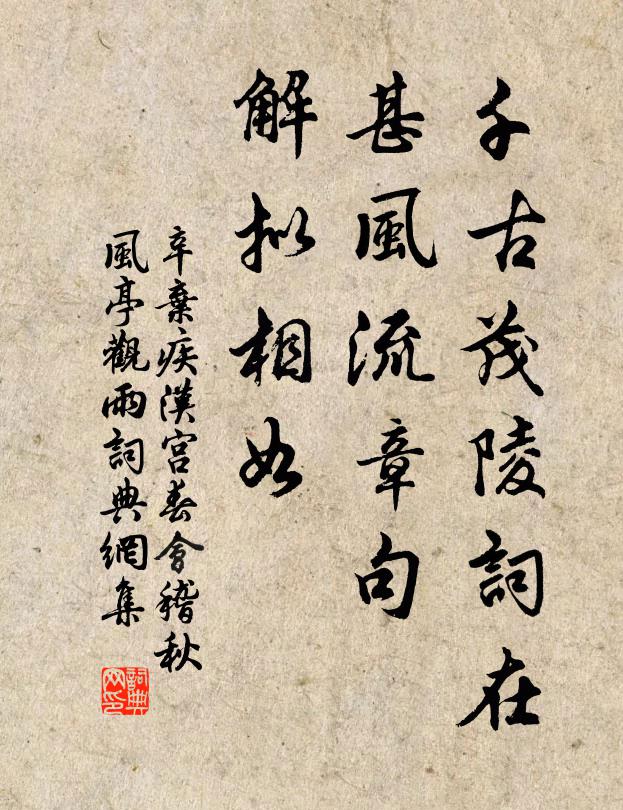 千古茂陵詞在
甚風流章句
解拟相如
辛棄疾漢宮春會稽秋
風亭觀雨詞典網集
詞典网印